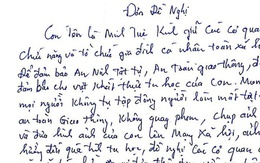 Đơn Đề Nghị
Con Tên là Minh Tuệ Kính gửi Các Cơ quan
Chức năng và tổ chức gia đình cá nhân toàn xã hội
Để đảm bảo An Ninh Trật tự, An Toàn giao thông, để
đảm bảo cho việt khất thực tu học của Con. Mong
mọi người Không tụ tập đông người làm mất trật
an toàn Giao Thông, Không quay phim, chụp ảnh
và đưa hình ảnh của con lên Mạng Xã hội, ảnh
hưởng đến quá trình tu học, đề nghị Các Cơ quan